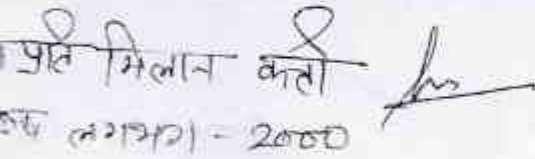 प्रति मिलान कर्ता
लगभग - 2000